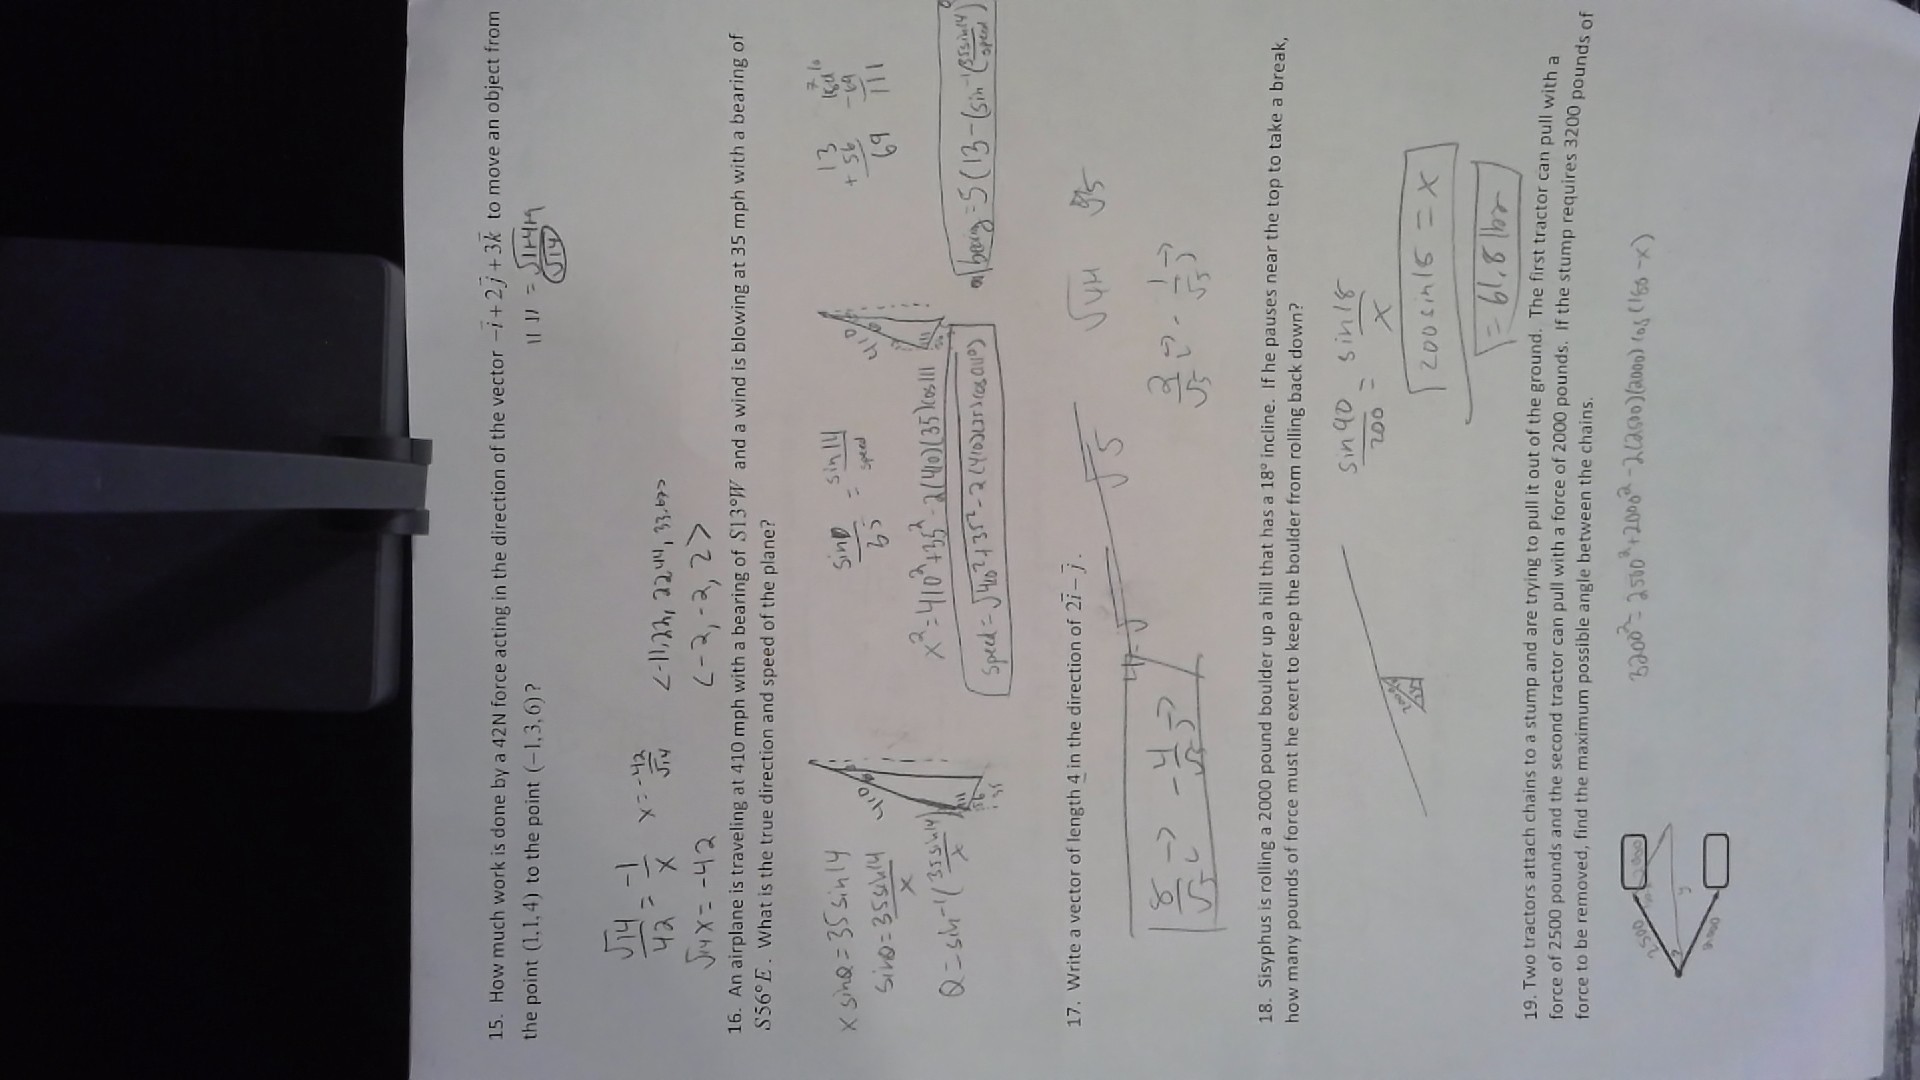 15. How much work is done by a 42N force acting in the direction of the vector −i + 2j + 3k to move an object from
the point (1,1,4) to the point (−1,3,6)?
|| || = √1+4+9
√14
√14/42 = -1/x
x = -42/√14
√14 x = -42
<-11.22, 22.44, 33.67>
<-2, -2, 2>
16. An airplane is traveling at 410 mph with a bearing of S13°W and a wind is blowing at 35 mph with a bearing of
S56°E. What is the true direction and speed of the plane?
410
35
410
13
+ 56
69
-69
111
x² = 410² + 35² - 2(410)(35)cos111
17. Write a vector of length 4 in the direction of 2i − j.
√5
8/√5 i - 4/√5 j
2/√5 i - 1/√5 j
18. Sisyphus is rolling a 2000 pound boulder up a hill that has a 18° incline. If he pauses near the top to take a break,
how many pounds of force must he exert to keep the boulder from rolling back down?
sin90/200 = sin18/x
= 61.8 lbs
19. Two tractors attach chains to a stump and are trying to pull it out of the ground. The first tractor can pull with a
force of 2500 pounds and the second tractor can pull with a force of 2000 pounds. If the stump requires 3200 pounds of
force to be removed, find the maximum possible angle between the chains.
2500
2000
?
y
2000
3200² = 2500² + 2000² - 2(2500)(2000) cos(180 - x)